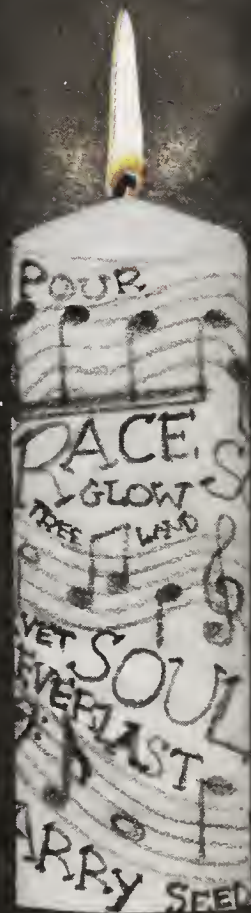 POUR
RACE S
GLOW
TREE WIND
VET SOUL
EVERLAST
ARRY
SEED